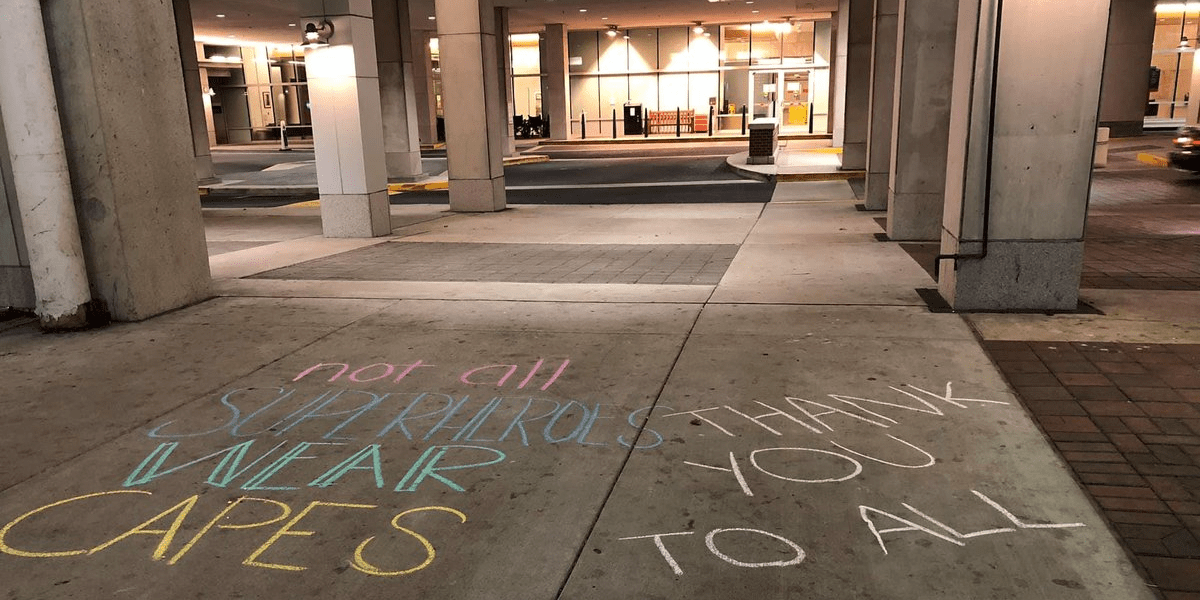 not all
SUPERHEROES
WEAR
CAPES
THANK
YOU
TO ALL